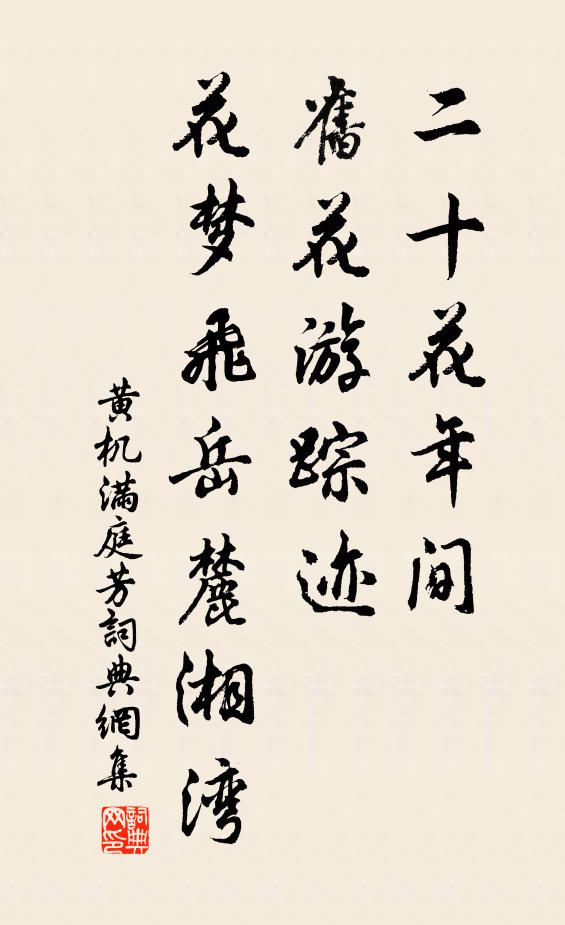 二十花年间
舊花游踪迹
花梦飛岳麓湘湾
黄机满庭芳詞典網集
詞典网印